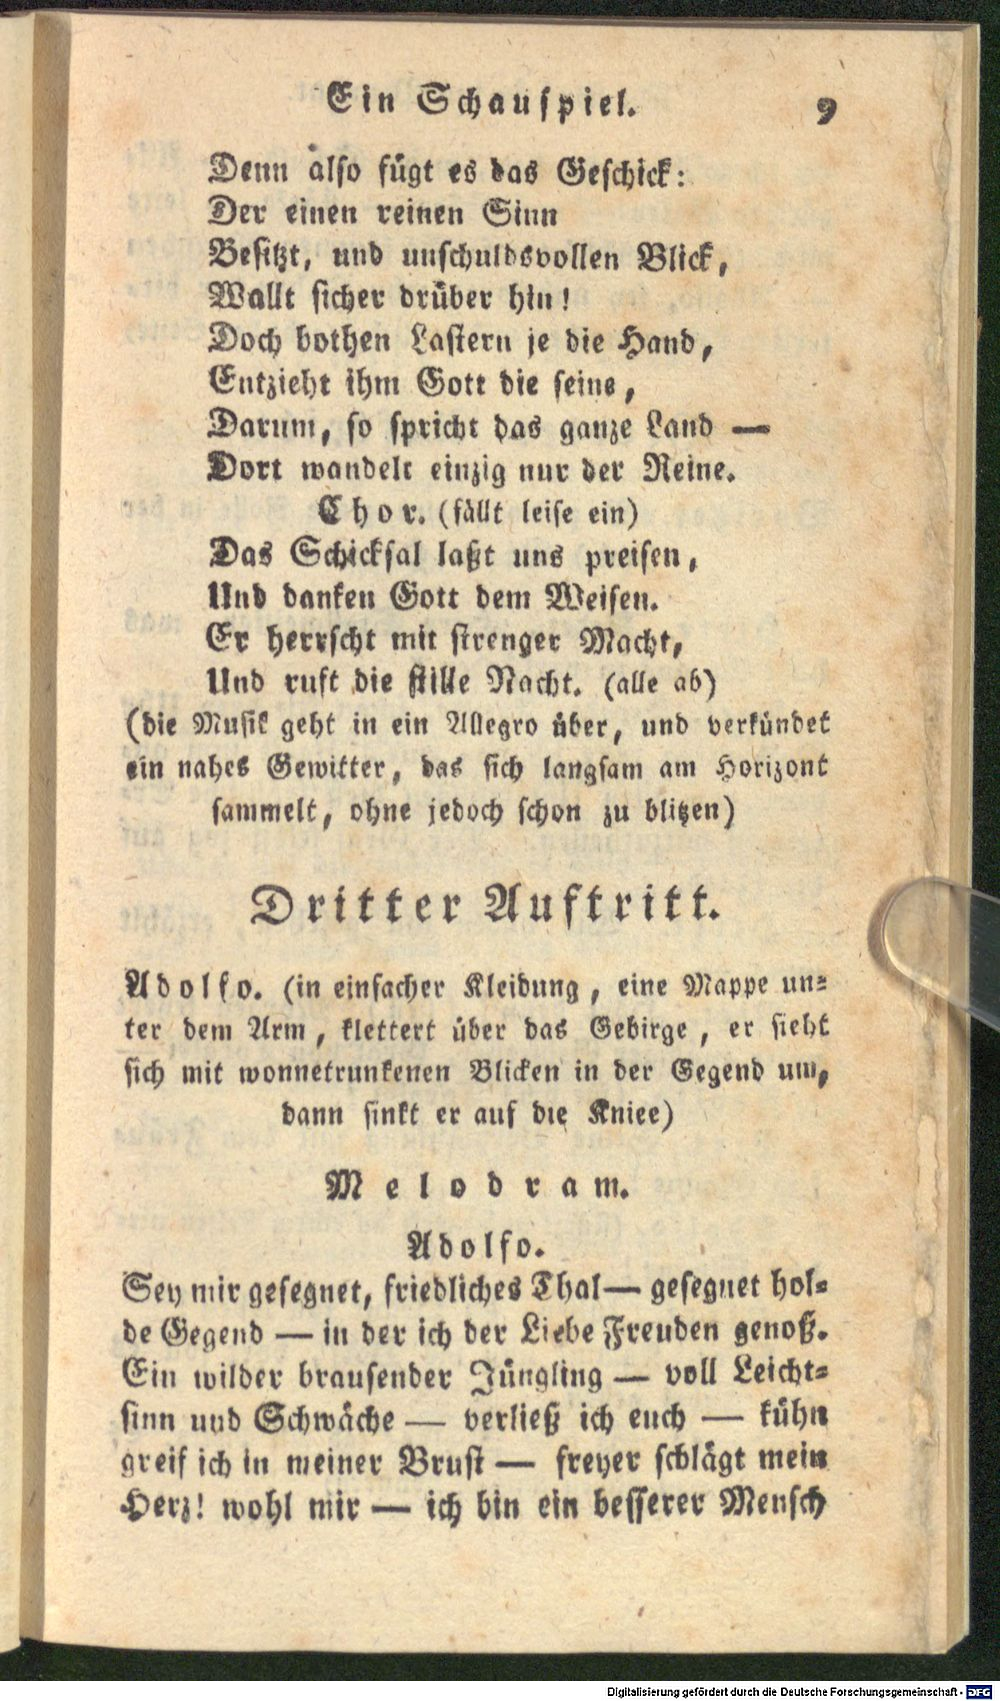 Ein Schauspiel. 9
Denn also fügt es das Geschick:
Der einen reinen Sinn
Besitzt, und unschuldsvollen Blick,
Wallt sicher drüber hin!
Doch bothen Lastern je die Hand,
Entzieht ihm Gott die seine,
Darum, so spricht das ganze Land —
Dort wandelt einzig nur der Reine.
Chor. (fällt leise ein)
Das Schicksal laßt uns preisen,
Und danken Gott dem Weisen.
Er herrscht mit strenger Macht,
Und ruft die stille Nacht. (alle ab)
(die Musik geht in ein Allegro über, und verkündet
ein nahes Gewitter, das sich langsam am Horizont
sammelt, ohne jedoch schon zu blitzen)
Dritter Auftritt.
Adolfo. (in einfacher Kleidung, eine Mappe un-
ter dem Arm, klettert über das Gebirge, er sieht
sich mit wonnetrunkenen Blicken in der Gegend um,
dann sinkt er auf die Kniee)
Melodram.
Adolfo.
Sey mir gesegnet, friedliches Thal — gesegnet hol-
de Gegend — in der ich der Liebe Freuden genoß.
Ein wilder brausender Jüngling — voll Leicht-
sinn und Schwäche — verließ ich euch — kühn
greif ich in meiner Brust — freyer schlägt mein
Herz! wohl mir — ich bin ein besserer Mensch
Digitalisierung gefördert durch die Deutsche Forschungsgemeinschaft - DFG